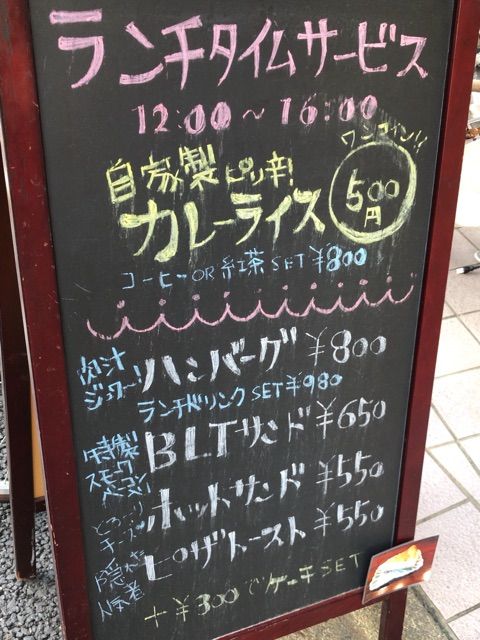 ランチタイムサービス
12:00〜16:00
ワンコイン!!
自家製ピリ辛!
カレーライス
500円
コーヒーOR紅茶SET ¥800
肉汁ジュワーッ
ハンバーグ ¥800
ランチドリンクSET ¥980
特製スモークベーコン
BLTサンド ¥650
とろ〜りチーズ
ホットサンド ¥550
隠れた人気者
ピザトースト ¥550
+¥300でケーキSET